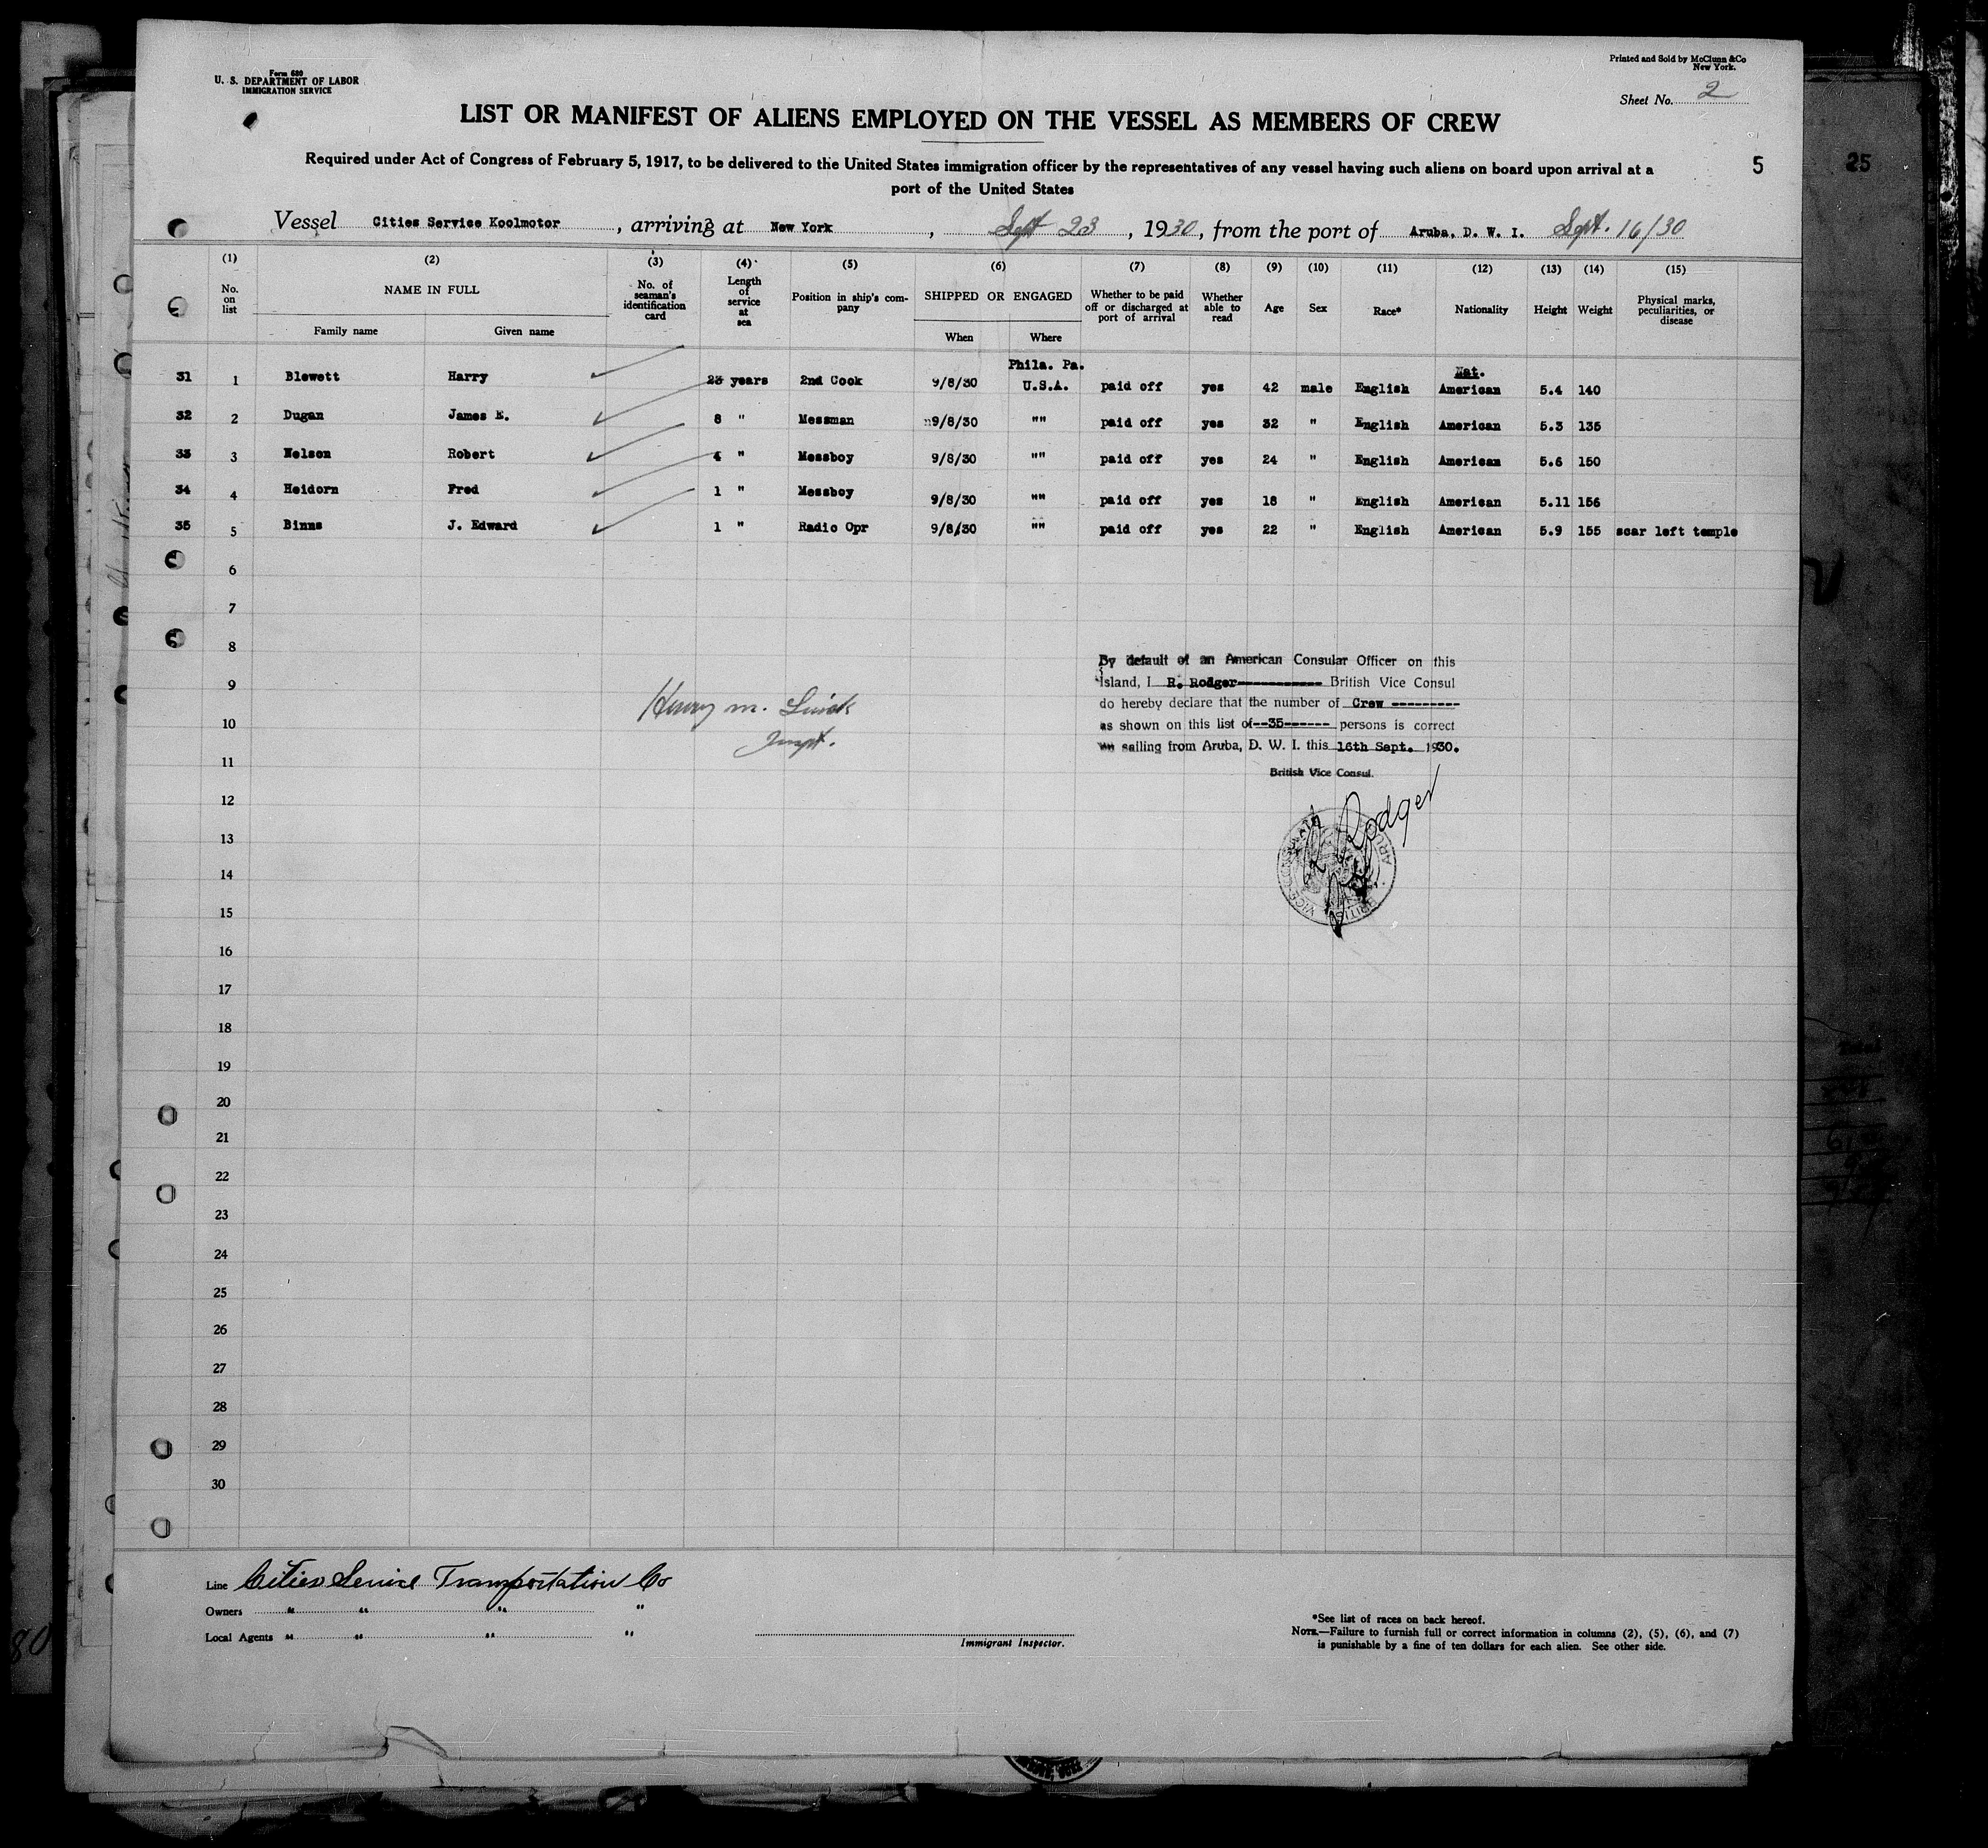 Form 680
U. S. DEPARTMENT OF LABOR
IMMIGRATION SERVICE
Printed and Sold by McClunn &Co
New York.
Sheet No. 2
LIST OR MANIFEST OF ALIENS EMPLOYED ON THE VESSEL AS MEMBERS OF CREW
Required under Act of Congress of February 5, 1917, to be delivered to the United States immigration officer by the representatives of any vessel having such aliens on board upon arrival at a
port of the United States
5
25
Vessel Cities Service Koolmotor , arriving at New York , Sept 23 , 1930, from the port of Aruba, D. W. I. Sept. 16/30
(1) (2) (3) (4) (5) (6) (7) (8) (9) (10) (11) (12) (13) (14) (15)
No. on list NAME IN FULL No. of seaman's identification card Length of service at sea Position in ship's company SHIPPED OR ENGAGED Whether to be paid off or discharged at port of arrival Whether able to read Age Sex Race* Nationality Height Weight Physical marks, peculiarities, or disease
Family name Given name When Where
31 1 Blewett Harry 23 years 2nd Cook 9/8/30 Phila. Pa. U.S.A. paid off yes 42 male English Nat. American 5.4 140
32 2 Dugan James E. 8 " Messman 9/8/30 "" paid off yes 32 " English American 5.3 135
33 3 Nelson Robert 4 " Messboy 9/8/30 "" paid off yes 24 " English American 5.6 150
34 4 Heidorn Fred 1 " Messboy 9/8/30 "" paid off yes 18 " English American 5.11 156
35 5 Binns J. Edward 1 " Radio Opr 9/8/30 "" paid off yes 22 " English American 5.9 155 scar left temple
6
7
8
9
10
11
12
13
14
15
16
17
18
19
20
21
22
23
24
25
26
27
28
29
30
By default of an American Consular Officer on this
Island, I R. Rodger----------- British Vice Consul
do hereby declare that the number of Crew ---------
as shown on this list of--35------ persons is correct
on sailing from Aruba, D. W. I. this 16th Sept. 1930.
British Vice Consul.
R Rodger
BRITISH VICE ARUBA
Henry M.
Inspt.
Line Cities Service Transportation Co
Owners " " " "
Local Agents " " " "
Immigrant Inspector.
*See list of races on back hereof.
NOTE.—Failure to furnish full or correct information in columns (2), (5), (6), and (7)
is punishable by a fine of ten dollars for each alien. See other side.
80